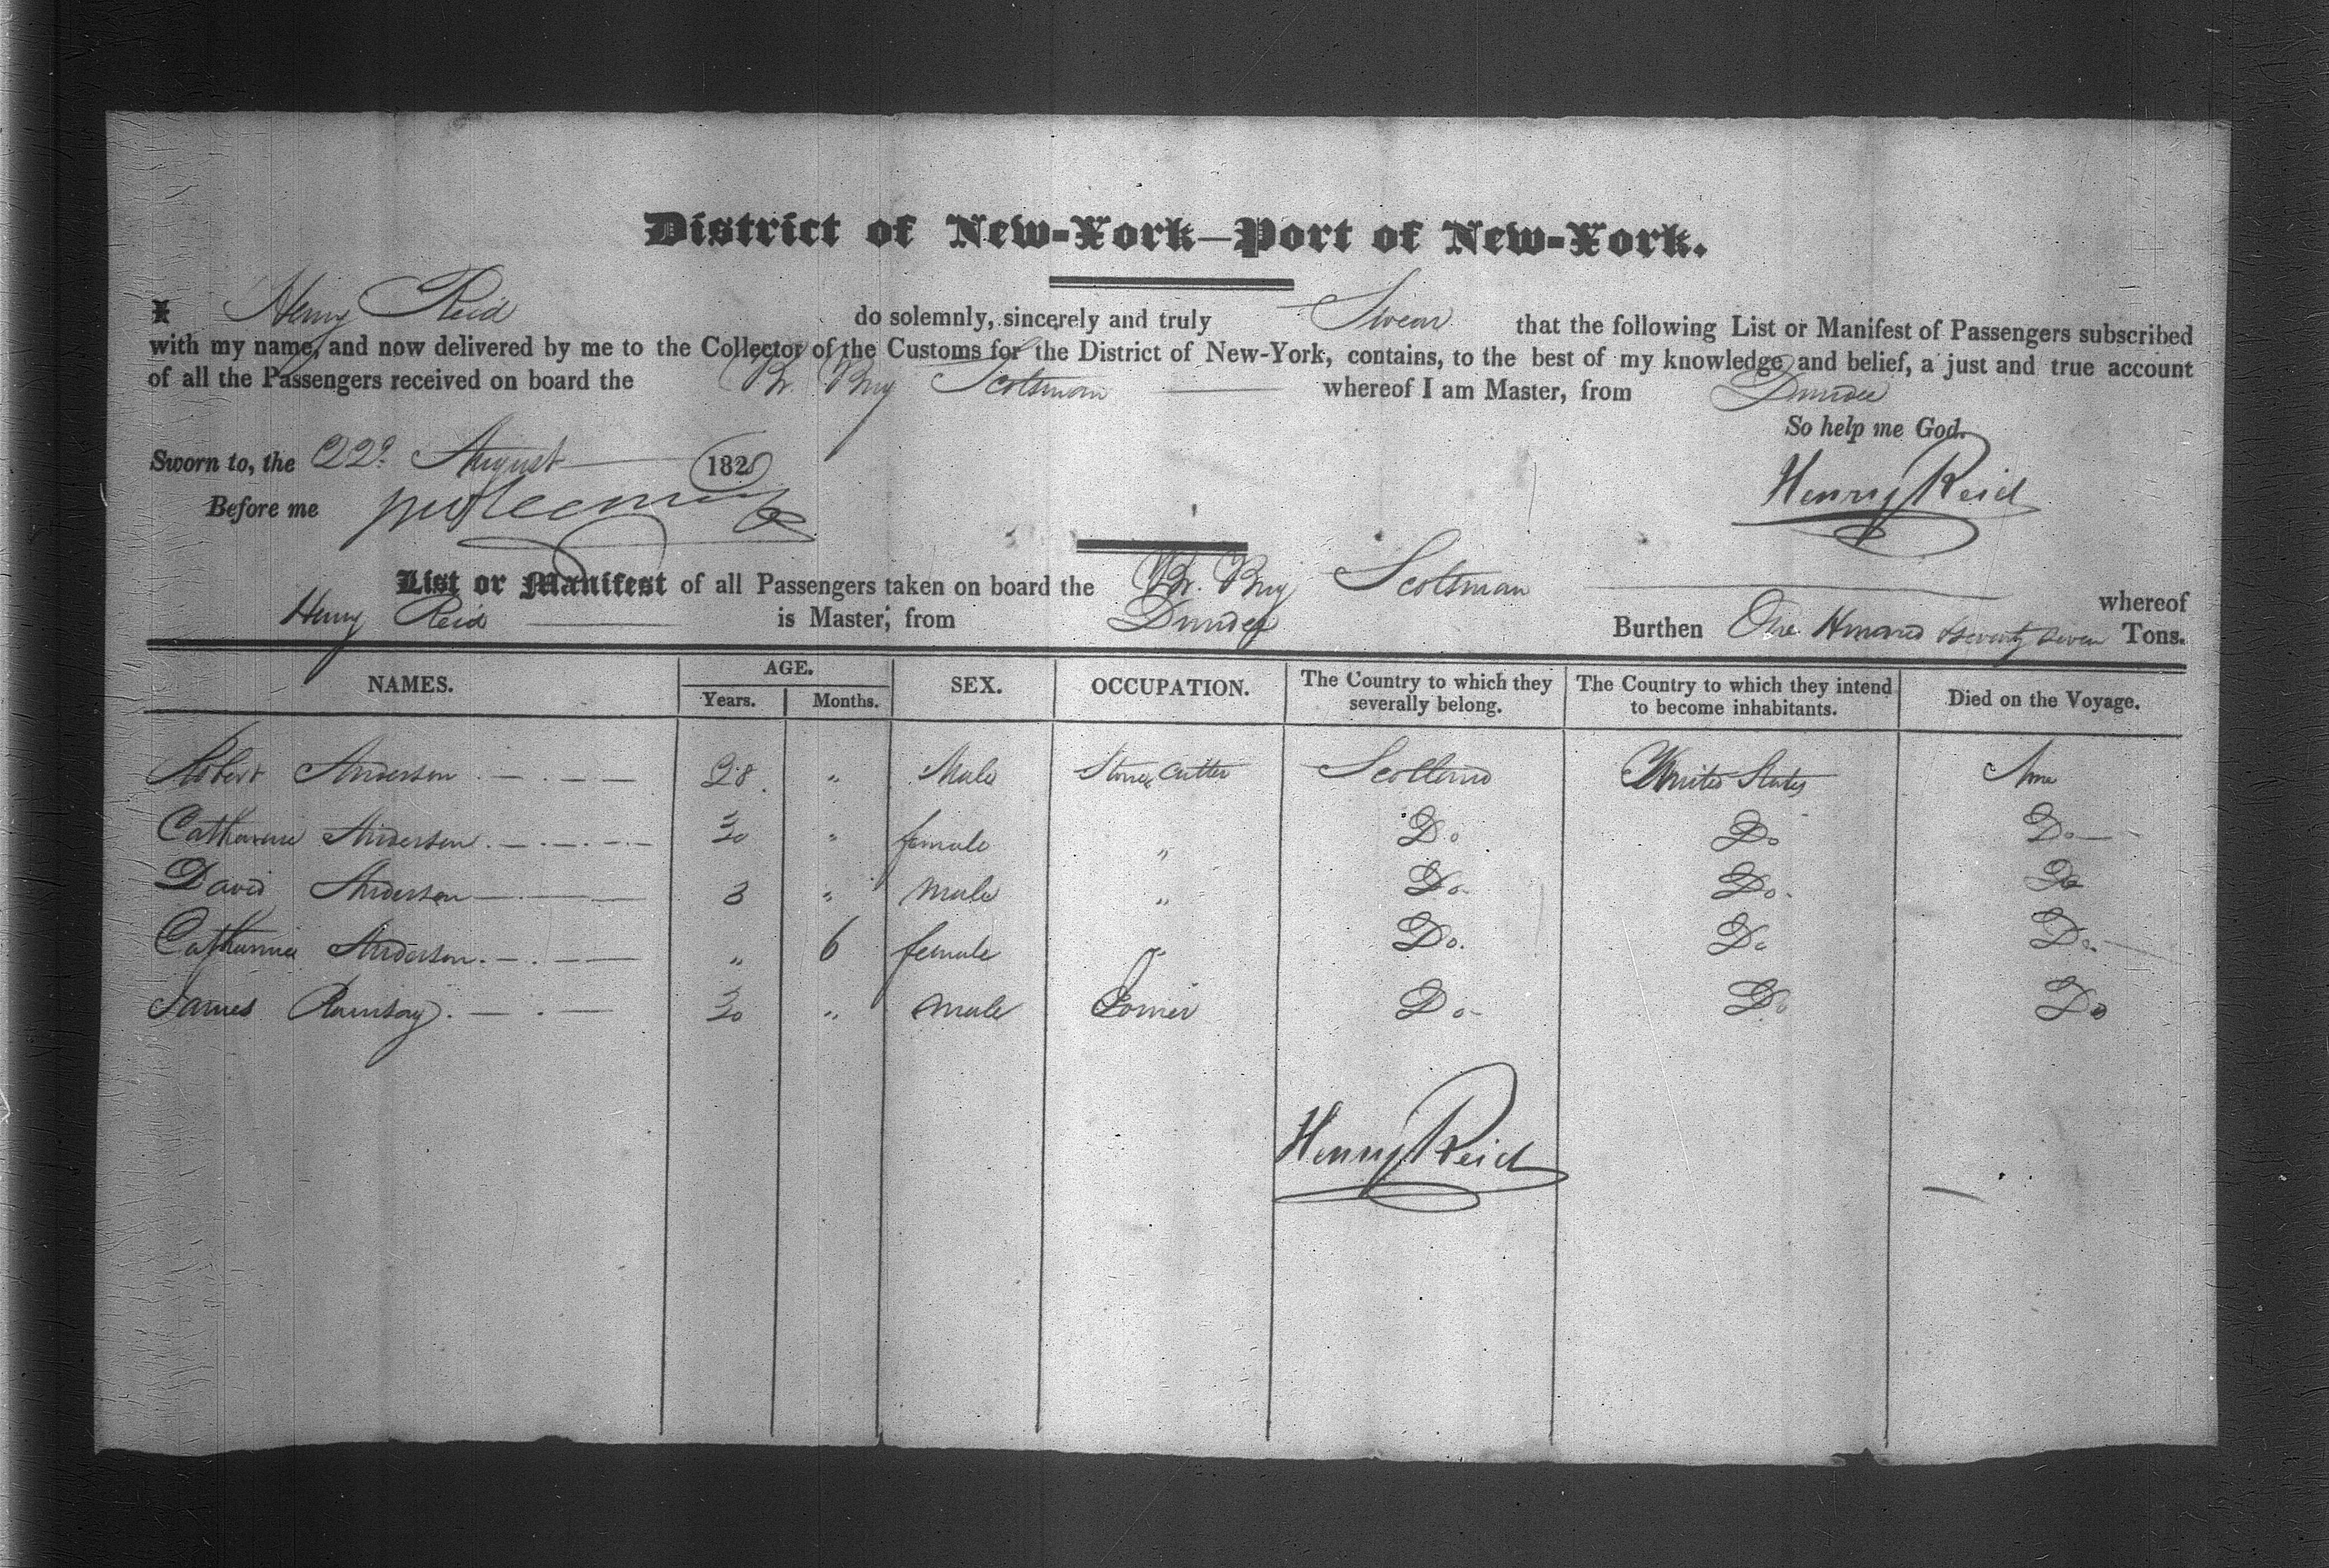 District of New-York—Port of New-York.
I Henry Reid do solemnly, sincerely and truly Swear that the following List or Manifest of Passengers subscribed
with my name, and now delivered by me to the Collector of the Customs for the District of New-York, contains, to the best of my knowledge and belief, a just and true account
of all the Passengers received on board the Br. Brig Scotsman whereof I am Master, from Dundee
So help me God.
Sworn to, the 22d August 182
Before me
Henry Reid
List or Manifest of all Passengers taken on board the Br. Brig Scotsman whereof
Henry Reid is Master, from Dundee Burthen One Hundred & seventy seven Tons.
NAMES. AGE. Years. Months. SEX. OCCUPATION. The Country to which they severally belong. The Country to which they intend to become inhabitants. Died on the Voyage.
Robert Anderson 28 " Male Stone Cutter Scotland United States None
Catharine Anderson 30 " female " Do Do Do
David Anderson 3 " Male " Do Do Do
Catharine Anderson " 6 female " Do. Do Do
James Ramsay 30 " Male Do Do Do
Henry Reid